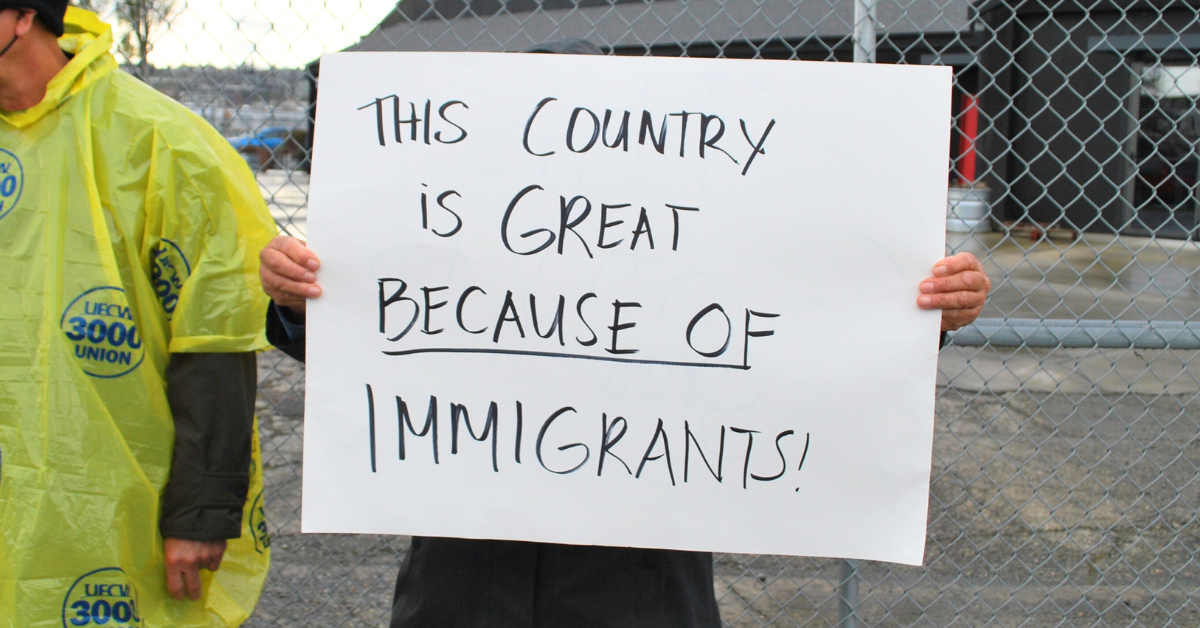 THIS COUNTRY
iS GREAT
BECAUSE OF
IMMIGRANTS!
UFCW
3000
UNION
UFCW
3000